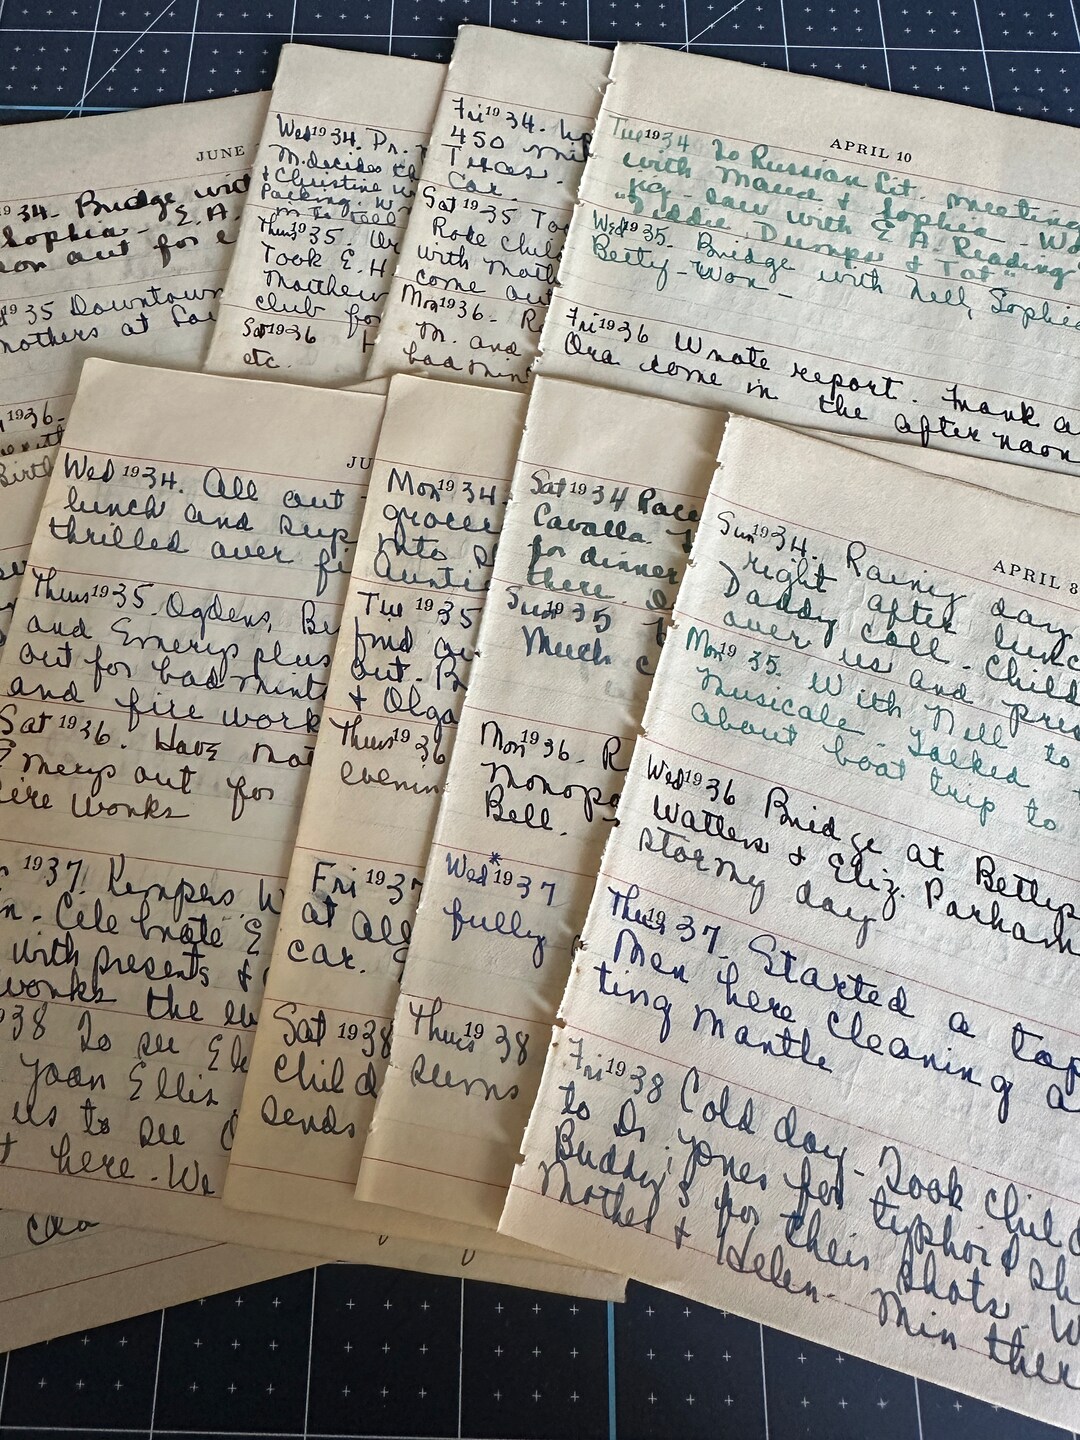 JUNE
1934. Bridge with
Sophia - E. A.
out for
1935 Downtown
mothers at
1936-
Birth
Wed 1934. Dr.
M. decides
& Christine
Packing. W
Thurs 1935.
Took E. H
Matthew
club for
Sat 1936 H
etc.
Fri 1934. up
450
Texas.
Car.
Sat 1935 Too
Rose
with Moth
come out
Mon 1936- R
M. and
badmin
APRIL 10
Tue 1934 To Russian Lit. meeting
with Maud & Sophia - Wo
jig-saw with E. A. Reading
"Diddie, Dumps & Tot"
Wed 1935. Bridge with Nell, Sophia
Betty - Won -
Fri 1936 Wrote report. Frank a
Ora come in the afternoon
JU
Wed 1934. All out
lunch and sup
thrilled over fi
Thurs 1935. Ogdens, Be
and Emerys plus
out for badminto
and fire work
Sat 1936. Have
Emerys out for
fire works
1937. Kempers W
Celebrate E
with presents &
works the ev
1938 To see
Joan Ellis
us to see
t here. We
Mon 1934.
grocer
into
Auntie
Tue 1935
find
out.
& Olga
Thurs 1936
evenin
Fri 1937
at
car.
Sat 1938
Child
sends
Sat 1934 Race
Cavalla.
for dinner
there.
Sun 1935
Much
Mon 1936. R
Monopo
Bell.
Wed* 1937
fully
Thurs 1938
Burns
APRIL 8
Sun 1934. Rainy day
right after lunc
Daddy call. Child
over us and pres
Mon 1935. With Nell to
musicale. Talked
about boat trip to
Wed 1936 Bridge at Bettys
Watters & Eliz. Parham
stormy day
Thu 1937. Started a tap
Men here cleaning a
ting mantle
Fri 1938 Cold day - Took child
to Dr. Jones for typhoid sh
Buddy's for their shots. W
Mother & Helen. Min ther